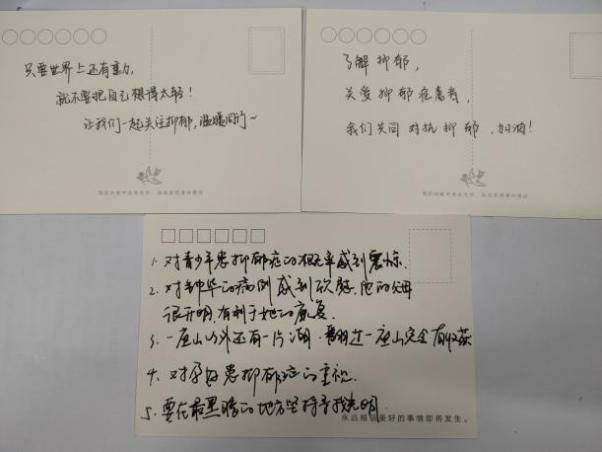 只要世界上还有重力,
就不要把自己想得太轻!
让我们一起关注抑郁,温暖同行~
了解抑郁,
关爱抑郁症患者,
我们共同对抗抑郁,加油!
1. 对青少年患抑郁症的概率感到震惊.
2. 对的病例感到, 她的父母
很开明,有利于她的康复.
3. 一座山以外还有一片湖,翻过一座山完会有收获
4. 对孕妇患抑郁症的重视.
5. 要在最黑暗的地方坚持寻找光明.
永远相信美好的事情即将发生。